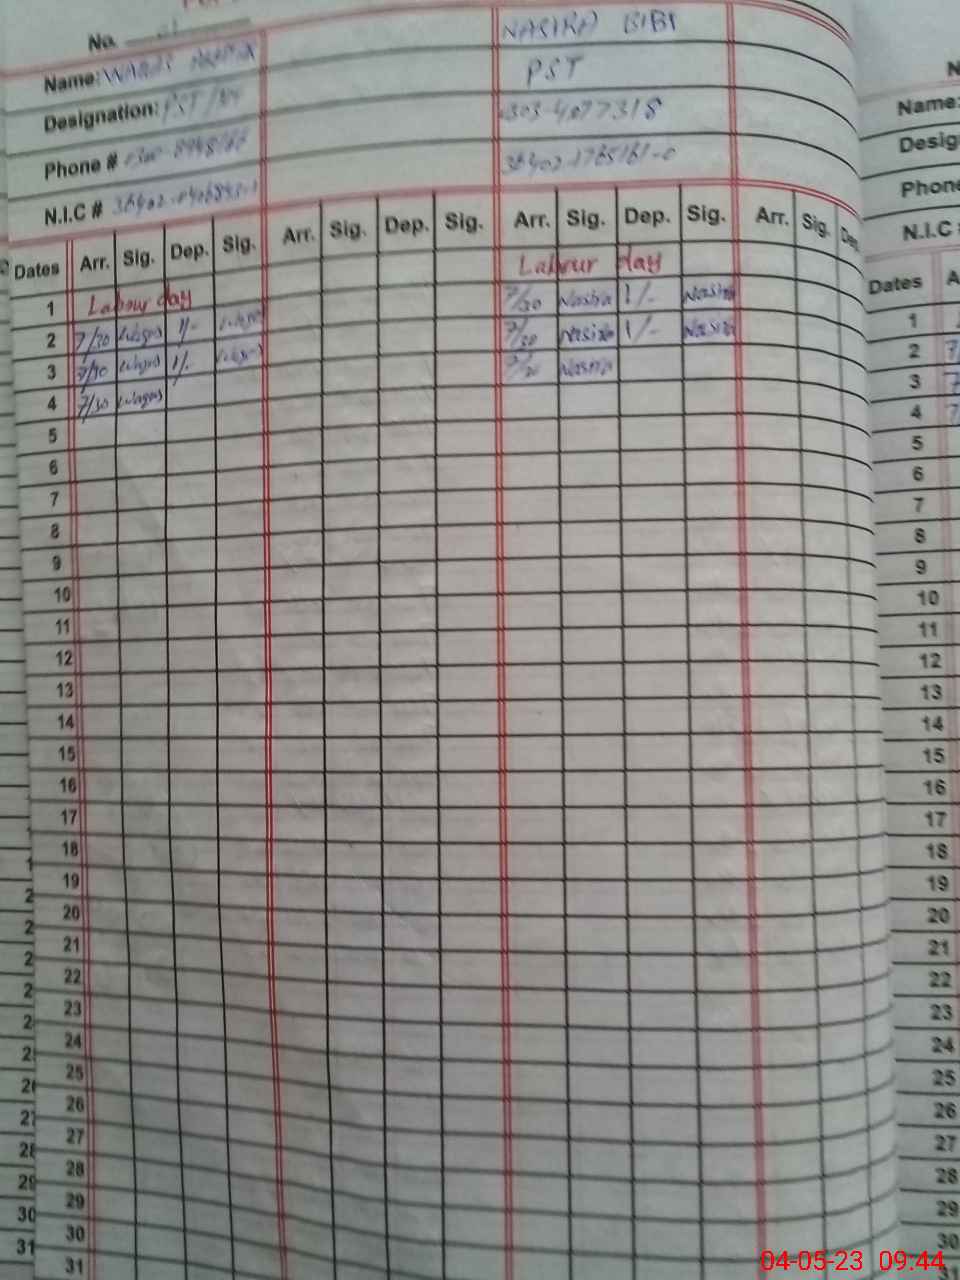 No.
NASIRA BIBI
Name: WARIS
PST
Designation: PST
0303-4077318
Phone #
36402-1765161-0
N.I.C #
Dates Arr. Sig. Dep. Sig. Arr. Sig. Dep. Sig. Arr. Sig. Dep. Sig. Arr. Sig. Dep.
1 Labour day Labour day
2 7/30 Waqas 1/- Waqas 7/30 Nasira 1/- Nasira
3 7/30 Waqas 1/- Waqas 7/30 Nasira 1/- Nasira
4 7/30 Waqas 7/30 Nasira
5
6
7
8
9
10
11
12
13
14
15
16
17
18
19
20
21
22
23
24
25
26
27
28
29
30
31
Name:
Desig
Phone
N.I.C
Dates A
1
2 7/
3
4 7
5
6
7
8
9
10
11
12
13
14
15
16
17
18
19
20
21
22
23
24
25
26
27
28
29
30
31
04-05-23 09:44